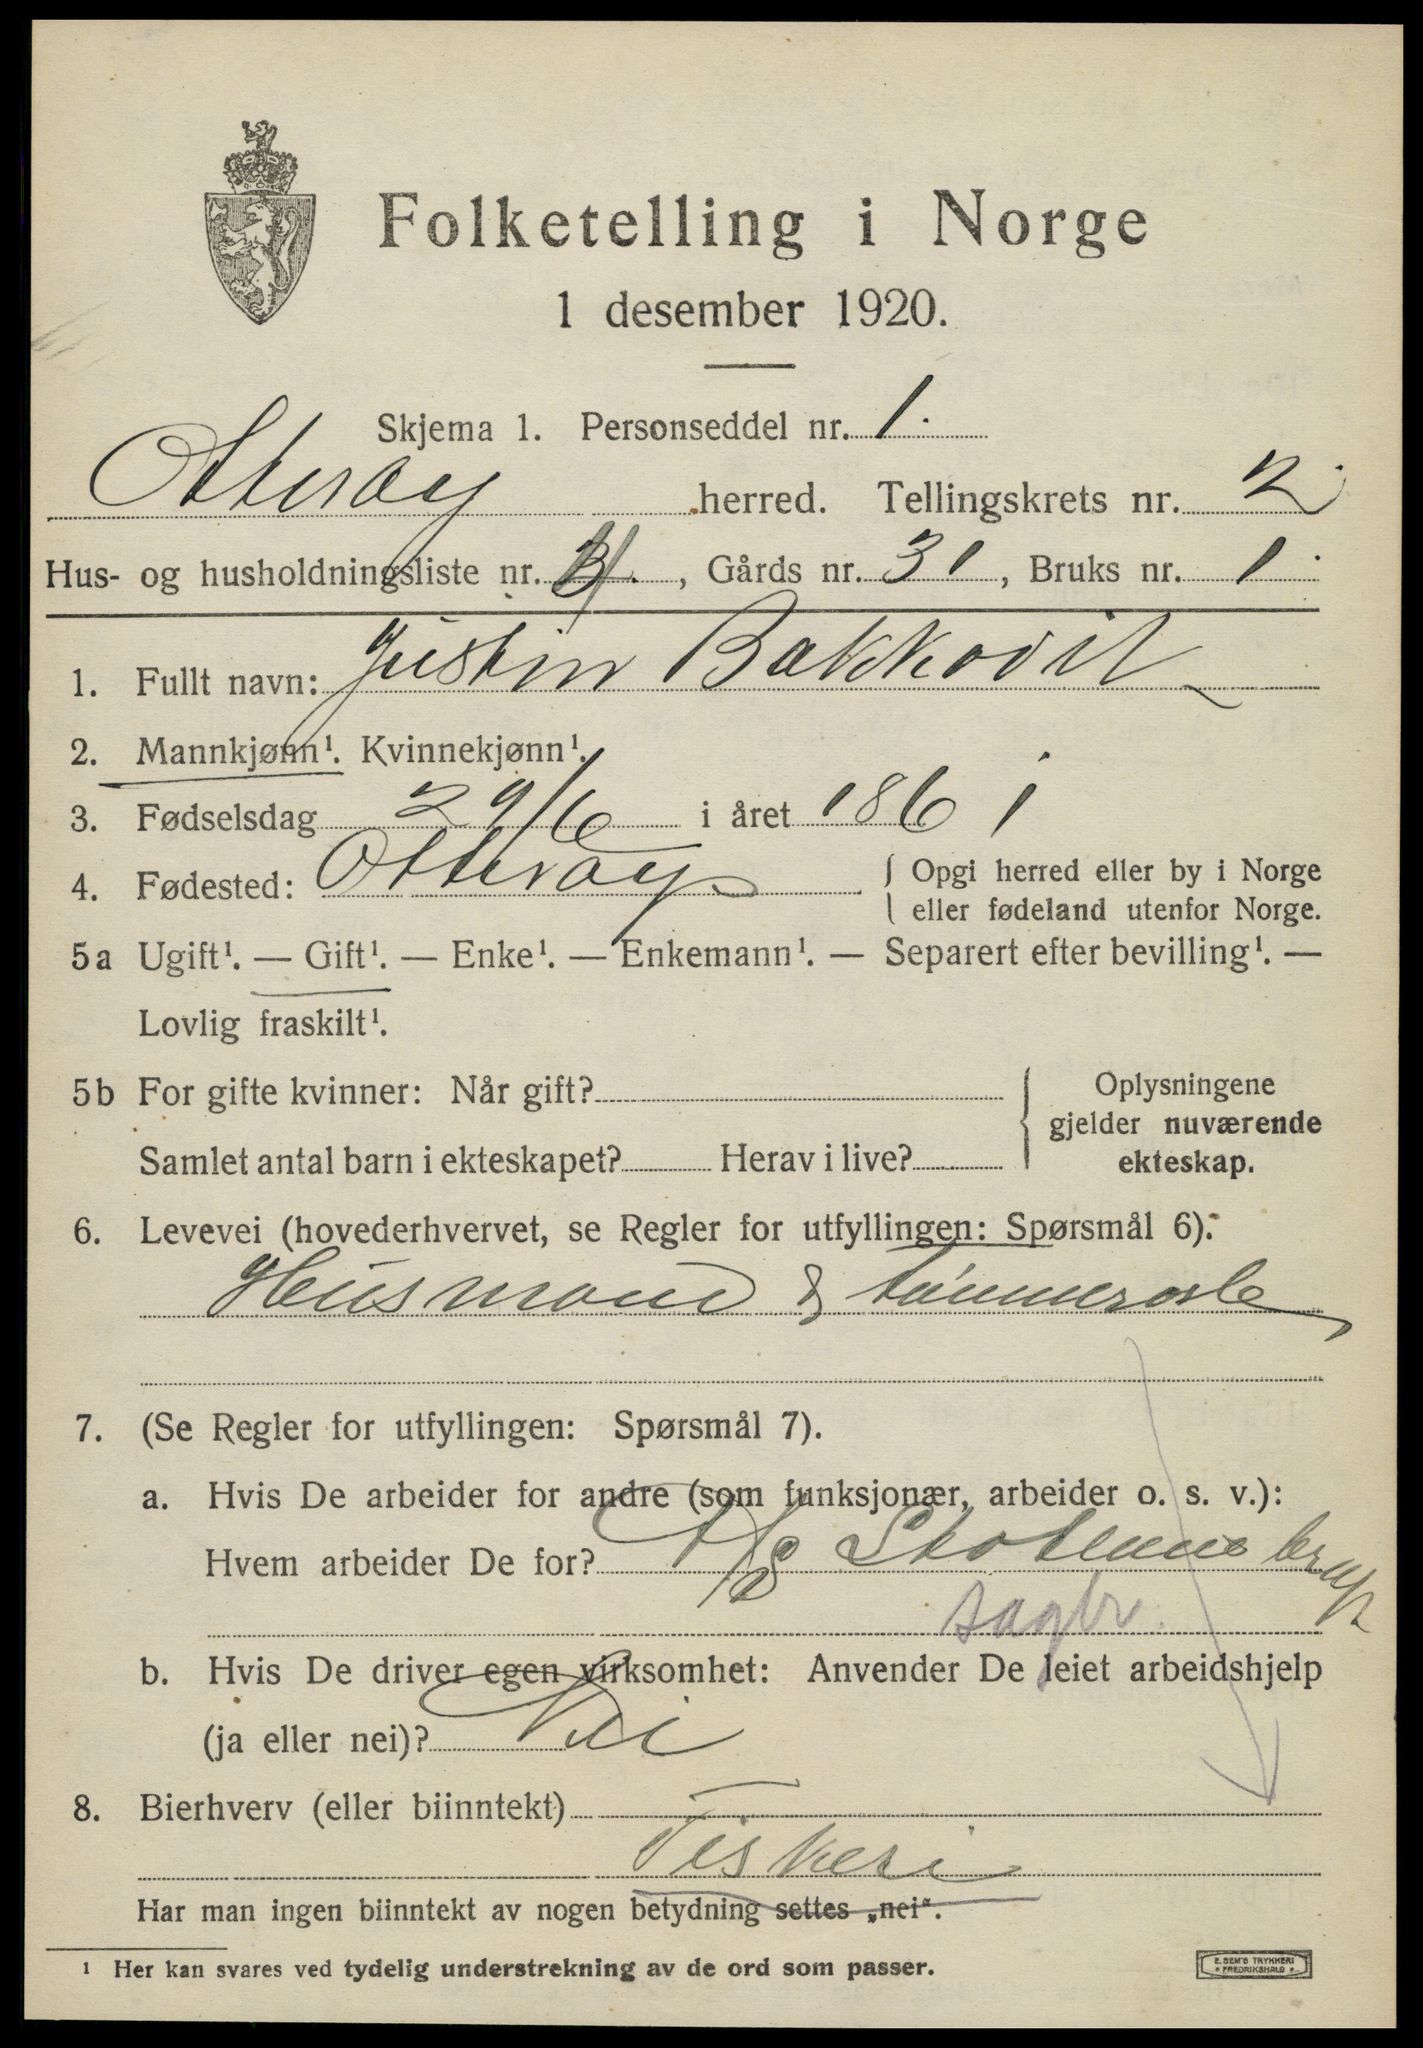 Folketelling i Norge
1 desember 1920.
Skjema 1. Personseddel nr. 1.
Otterøy herred. Tellingskrets nr. 2
Hus- og husholdningsliste nr. , Gårds nr. 31, Bruks nr. 1.
1. Fullt navn: Justin Bakkevik
2. Mannkjønn¹. Kvinnekjønn¹.
3. Fødselsdag 29/6 i året 1861
4. Fødested: Otterøy { Opgi herred eller by i Norge
eller fødeland utenfor Norge.
5a Ugift¹. — Gift¹. — Enke¹. — Enkemann¹. — Separert efter bevilling¹. —
Lovlig fraskilt¹.
5b For gifte kvinner: Når gift?
Samlet antal barn i ekteskapet? Herav i live?
Oplysningene
gjelder nuværende
ekteskap.
6. Levevei (hovederhvervet, se Regler for utfyllingen: Spørsmål 6).
Husmand &
7. (Se Regler for utfyllingen: Spørsmål 7).
a. Hvis De arbeider for andre (som funksjonær, arbeider o. s. v.):
Hvem arbeider De for? A/S bruk
sagbr.
b. Hvis De driver egen virksomhet: Anvender De leiet arbeidshjelp
(ja eller nei)? Nei
8. Bierhverv (eller biinntekt)
Fiskeri
Har man ingen biinntekt av nogen betydning settes „nei“.
¹ Her kan svares ved tydelig understrekning av de ord som passer.
E. SEM'S TRYKKERI
FREDRIKSHALD